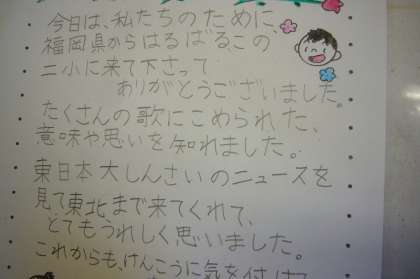 今日は、私たちのために、
福岡県からはるばるこの
二小に来て下さって
ありがとうございました。
たくさんの歌にこめられた、
意味や思いを知れました。
東日本大しんさいのニュースを
見て東北、まで来てくれて、
とてもうれしく思いました。
これからも、けんこうに気を付けて